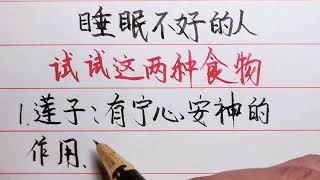 睡眠不好的人
试试这两种食物
1.莲子：有宁心安神的
作用、